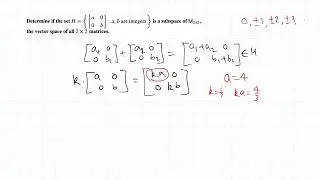 Determine if the set H = { [a 0; 0 b] : a, b are integers } is a subspace of M₂ₓ₂,
the vector space of all 2 × 2 matrices.
0, ±1, ±2, ±3
[a₁ 0; 0 b₁] + [a₂ 0; 0 b₂] = [a₁+a₂ 0; 0 b₁+b₂] ∈ H
k · [a 0; 0 b] = [ka 0; 0 kb]
a = 4
ka = 4/3